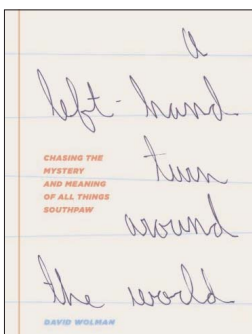 a
left-hand
turn
around
the world
CHASING THE
MYSTERY
AND MEANING
OF ALL THINGS
SOUTHPAW
DAVID WOLMAN